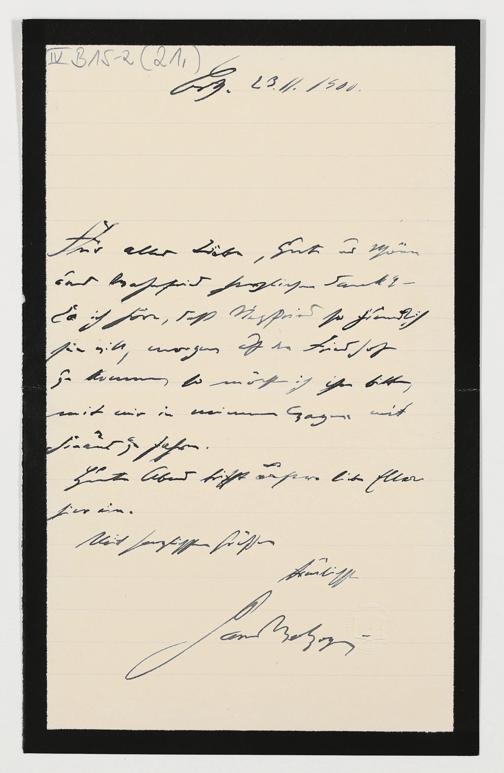 IV B 15-2 (21,)
23.11.1900.
Für alles Liebe, Gute u Schöne
aus Wahnfried herzlichen Dank! –
Da ich höre, daß Siegfried so freundlich
sein will, morgen auf den Friedhof
zu kommen, so möcht ich ihn bitten,
mit mir in meinem Wagen mit
hinaus zu fahren.
Heute Abend trifft unsere liebe
hier ein.
Mit herzlichen Grüßen
treulichst